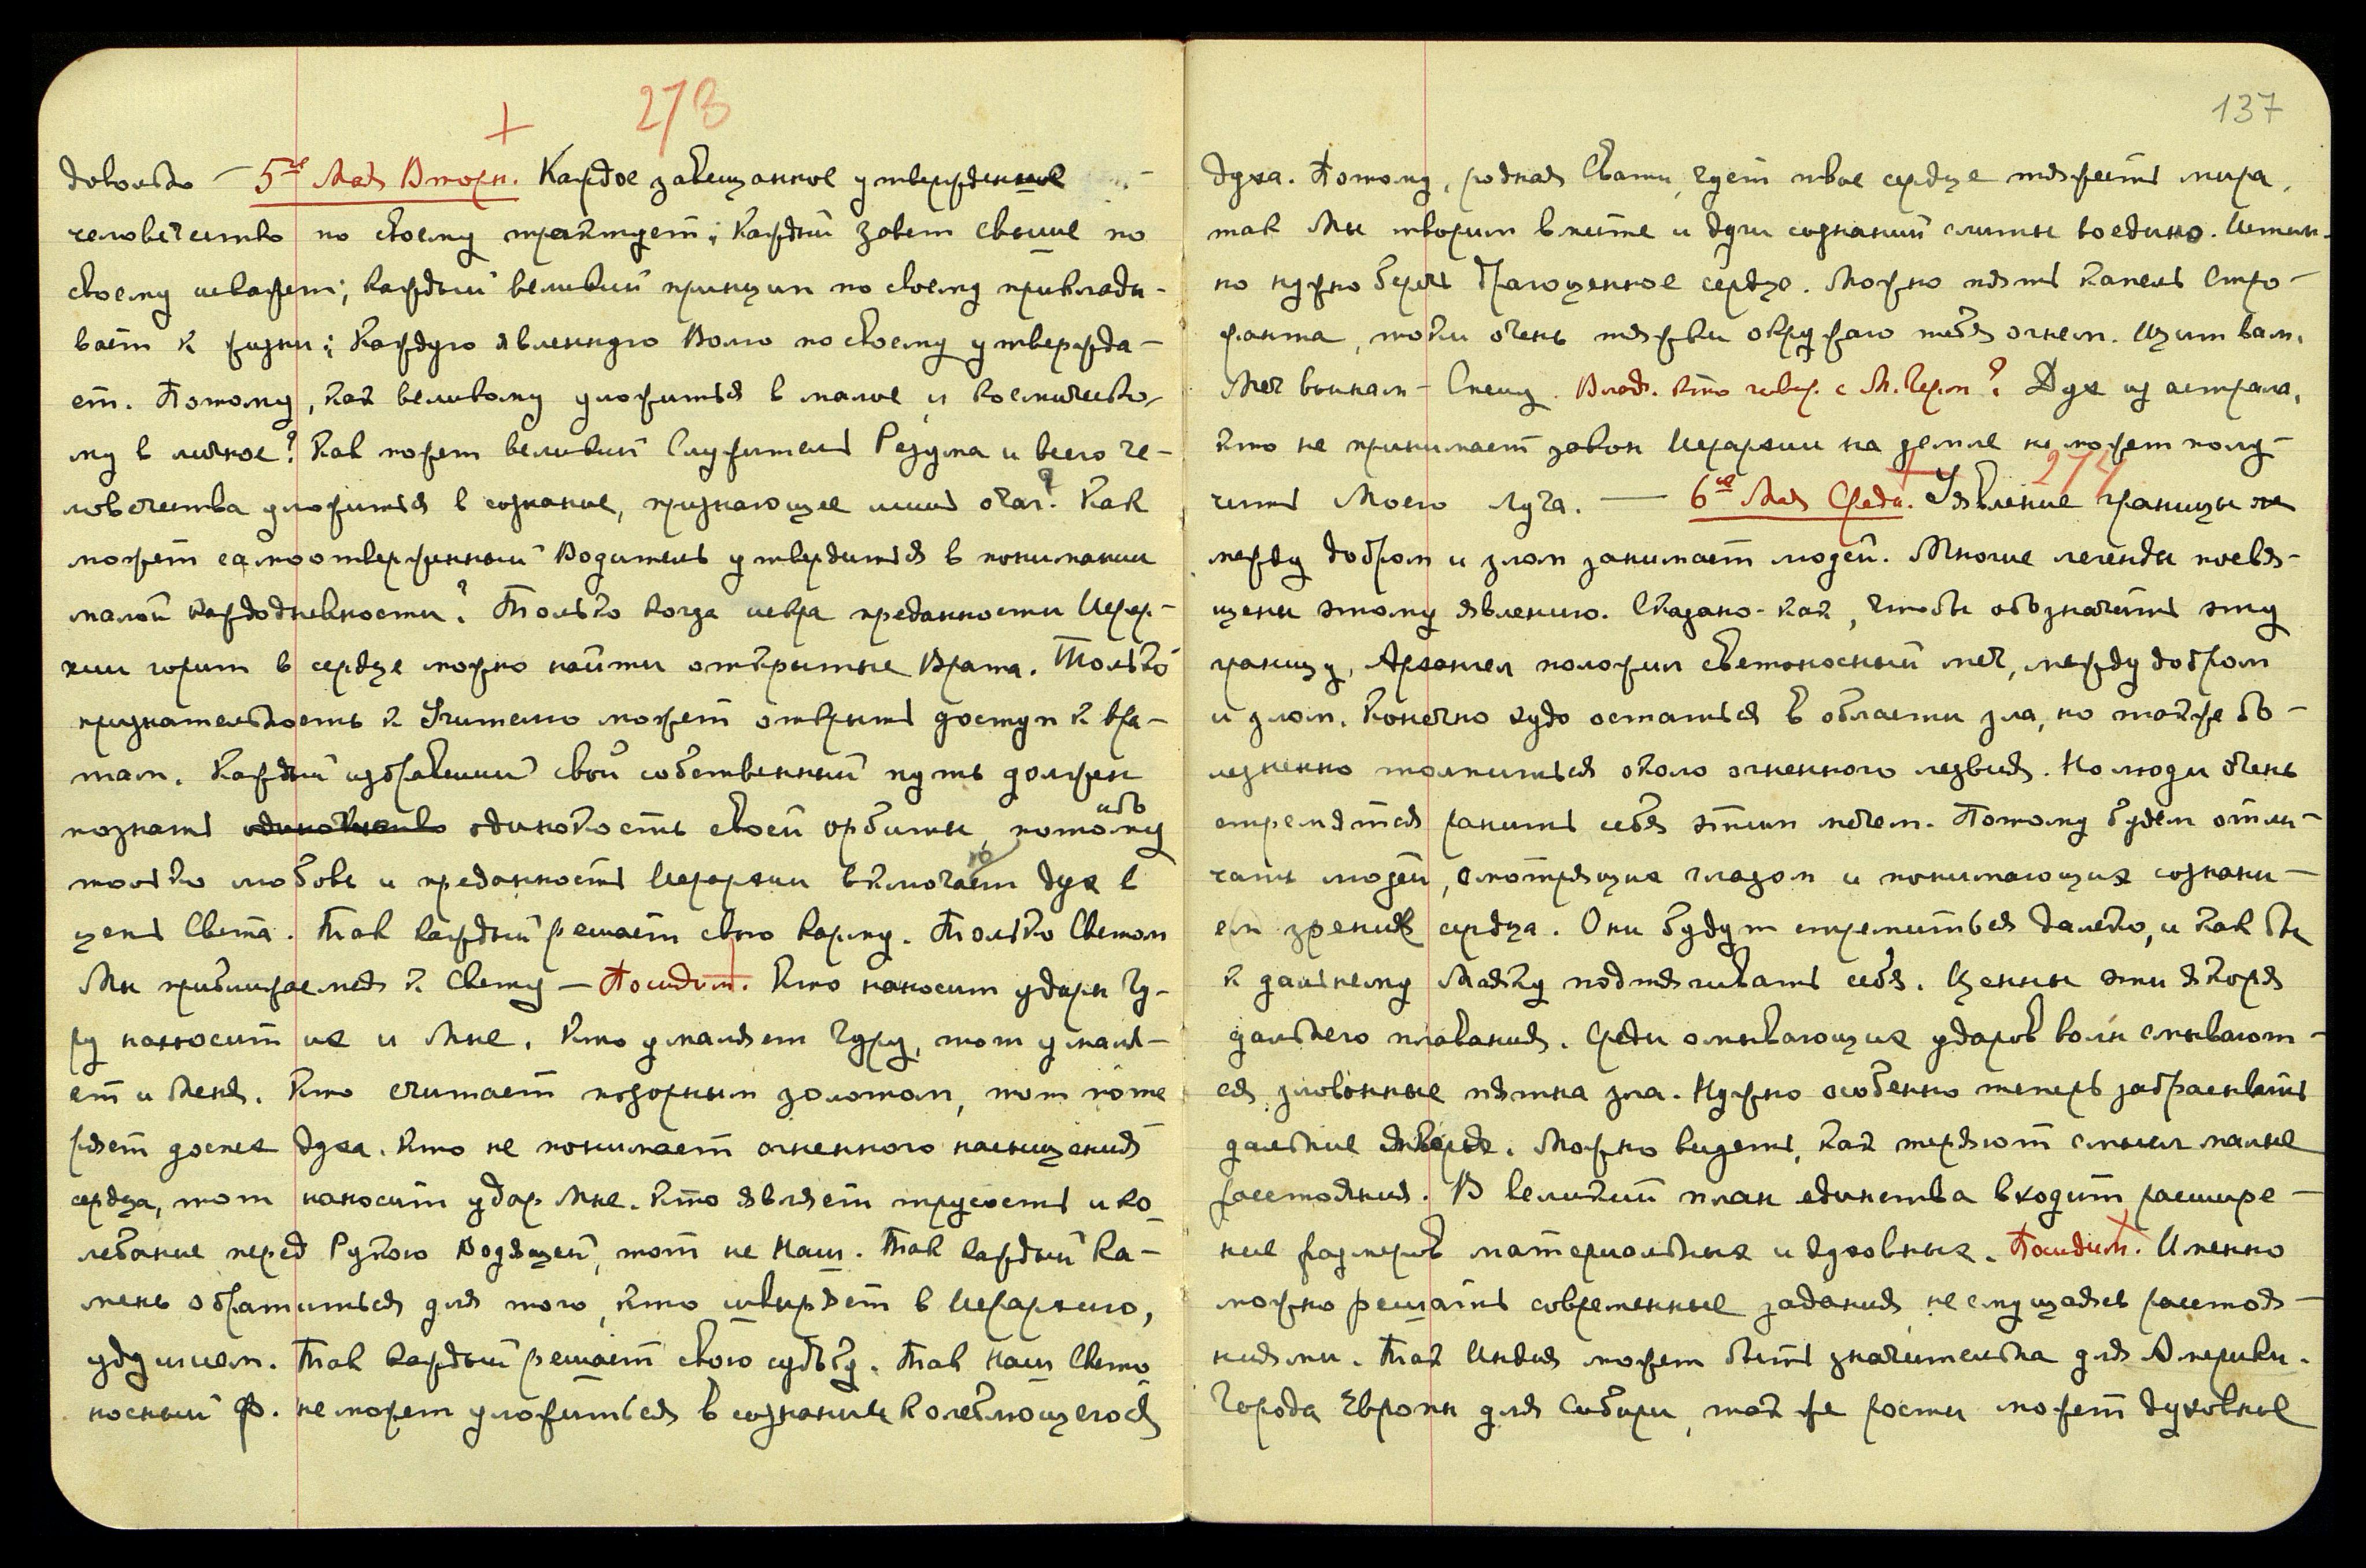 273
довольно — 5ое Мая Вторн. Каждое завещанное утверждение
человечество по своему трактует; каждый завет свыше по
своему искажет; каждый великий принцип по своему приклады-
вает к жизни; каждую явленную Волю по своему утвержда-
ет. Потому, как великому уложиться в малое и космическо-
му в личное? Как может великий Служитель Разума и всего че-
ловечества уложиться в сознание, признающее лишь очаг? Как
может самоотверженный Водитель утвердиться в понимании
малой каждодневности? Только когда искра преданности Иерар-
хии горит в сердце можно найти открытые Врата. Только
признательность к Учителю может открыть доступ к вра-
там. Каждый избравший свой собственный путь должен
ибо
познать одинокость своей орбиты, потому
только любовь и преданность Иерархии включают дух в
цепь Света. Так каждый решает свою карму. Только Светом
Мы приближаемся к Свету — Пошидит. Кто наносит удары Гу-
ру наносит их и Мне. Кто умаляет Гуру, тот умаля-
ет и Меня. Кто считает позорным золотом, тот поте
ряет доспех духа. Кто не понимает огненного насыщения
сердца, тот наносит удар Мне. Кто являет трусость и ко-
лебание перед Рукою Водящей, тот не Наш. Так каждый ка-
мень обратиться для того, кто швыряет в Иерархию,
удушием. Так каждый решает свою судьбу. Так Наш Свето
носный Ф. не может уложиться в сознании колеблющегося
137
духа. Потому, родная Свати, чует твое сердце тяжесть мира,
так Мы творим вместе и души сознаний слиты воедино. Истин-
но нужно беречь Драгоценное сердце. Можно пять капель Стро-
фанта, токи очень тяжки окружаю тебя огнем. Щит вам.
Меч воинам — Спешу. Влад. Кто говор. с М. Черт? Дух из астрала,
кто не принимает закон Иерархии на земле не может полу-
274
чить Моего Луча. — 6ое Мая Среда. Явление границы
между добром и злом занимает людей. Многие легенды посвя-
щены этому явлению. Сказано-как, чтобы обозначить эту
границу, Архангел положил светоносный меч, между добром
и злом. Конечно худо остаться в области зла, но также бо-
лезненно толпиться около огненного лезвия. Но люди очень
стремятся ранить себя этим мечом. Потому будем отли-
чать людей, смотрящих глазом и понимающих сознани-
ем зрения сердца. Они будут стремиться далеко, и как бы
к дальнему Маяку подтягивать себя. Ценны эти якоря
дальнего плавания. Среди омывающих ударов волн смывают-
ся зловонные пятна зла. Нужно особенно теперь забрасывать
дальние якоря. Можно видеть, как теряют смысл малые
расстояния. В великий план единства входит расшире-
ние размеров материальных и духовных. Пошидит. Именно
можно решать современные задания не смущаясь расстоя-
ниями. Так Индия может быть значительна для Америки.
Города Европы для Сибири, так же расти может духовное